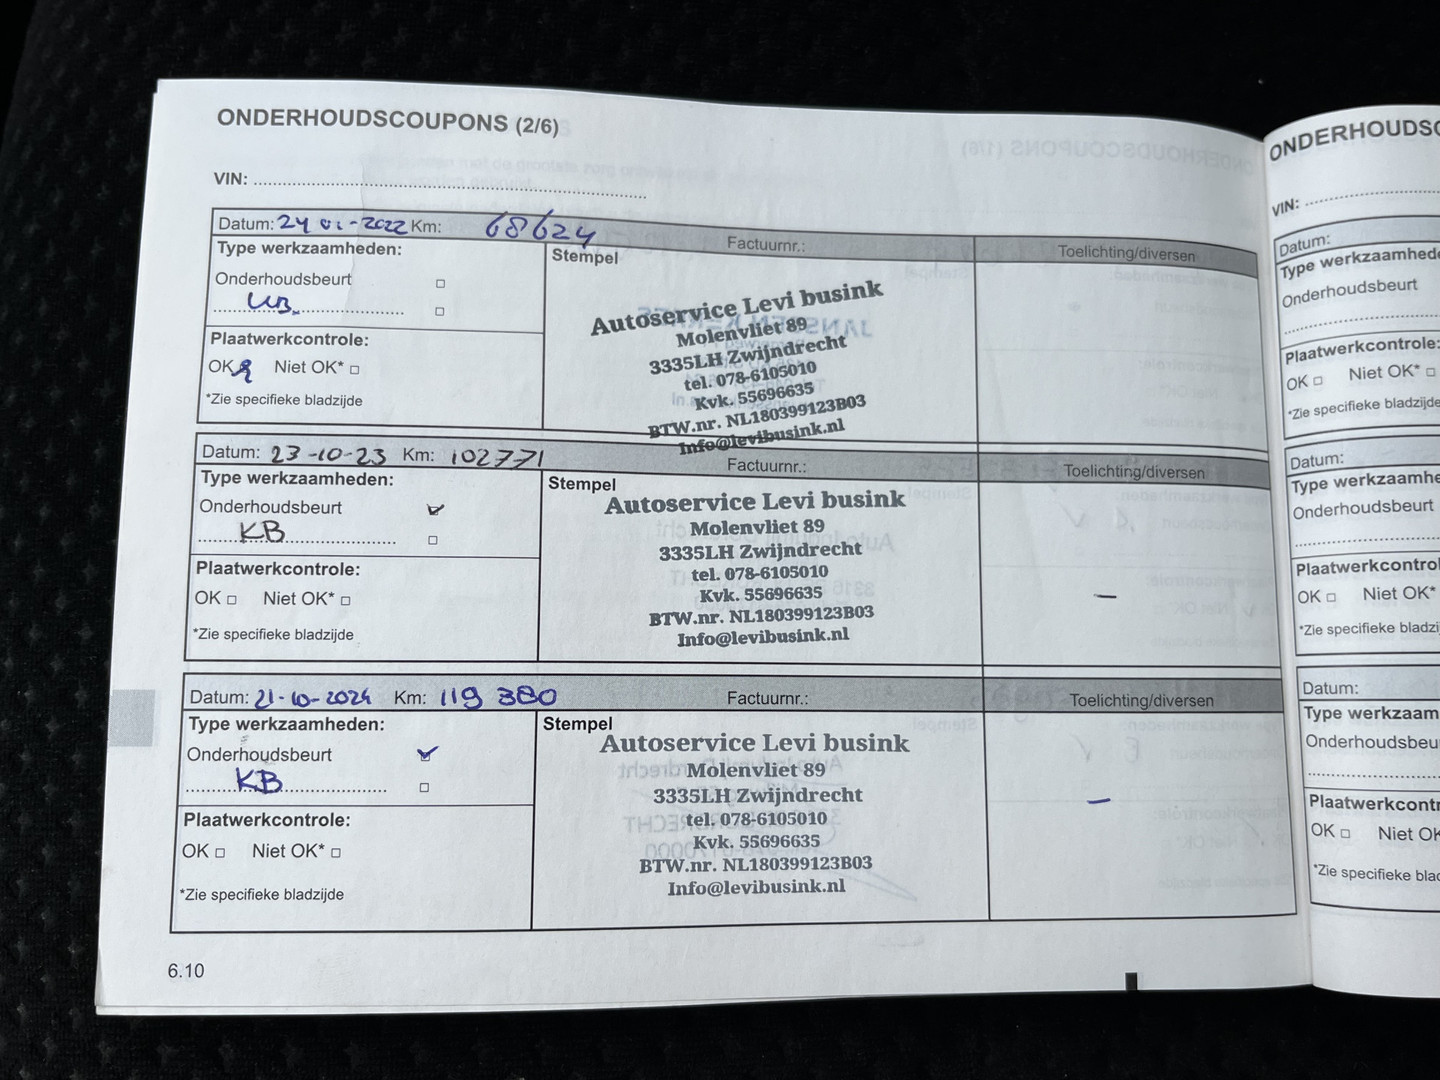 ONDERHOUDSCOUPONS (2/6)
VIN:
Datum: 24 01-2022 Km: 68624
Factuurnr.:
Toelichting/diversen
Type werkzaamheden:
Stempel
Onderhoudsbeurt
Plaatwerkcontrole:
OK Niet OK*
*Zie specifieke bladzijde
Autoservice Levi busink
Molenvliet 89
3335LH Zwijndrecht
tel. 078-6105010
Kvk. 55696635
BTW.nr. NL180399123B03
Info@levibusink.nl
Datum: 23-10-23 Km: 102771
Factuurnr.:
Toelichting/diversen
Type werkzaamheden:
Stempel
Onderhoudsbeurt
KB
Plaatwerkcontrole:
OK Niet OK*
*Zie specifieke bladzijde
Autoservice Levi busink
Molenvliet 89
3335LH Zwijndrecht
tel. 078-6105010
Kvk. 55696635
BTW.nr. NL180399123B03
Info@levibusink.nl
–
Datum: 21-10-2024 Km: 119 380
Factuurnr.:
Toelichting/diversen
Type werkzaamheden:
Stempel
Onderhoudsbeurt
KB
Plaatwerkcontrole:
OK Niet OK*
*Zie specifieke bladzijde
Autoservice Levi busink
Molenvliet 89
3335LH Zwijndrecht
tel. 078-6105010
Kvk. 55696635
BTW.nr. NL180399123B03
Info@levibusink.nl
–
6.10
ONDERHOUDSC
VIN:
Datum:
Type werkzaamhede
Onderhoudsbeurt
Plaatwerkcontrole:
OK Niet OK*
*Zie specifieke bladz
Datum:
Type werkzaamhe
Onderhoudsbeurt
Plaatwerkcontrol
OK Niet OK*
*Zie specifieke bladzi
Datum:
Type werkzaam
Onderhoudsbeu
Plaatwerkcontr
OK Niet OK
*Zie specifieke blad